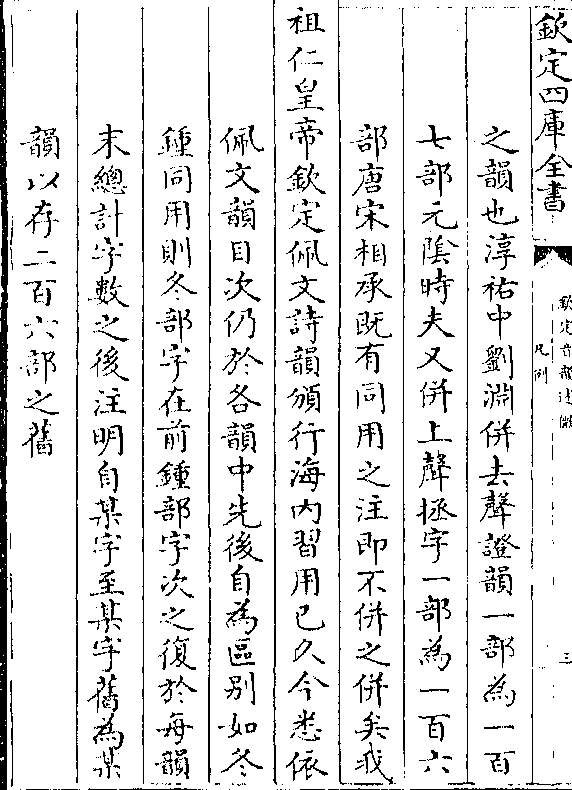 欽定四庫全書
欽定音韻述微
凡例
三
之韻也淳祐中劉淵併去聲證韻一部為一百
七部元陰時夫又併上聲拯字一部為一百六
部唐宋相承既有同用之注即不併之併矣我
祖仁皇帝欽定佩文詩韻頒行海内習用已久今悉依
佩文韻目次仍於各韻中先後自為區别如冬
鍾同用則冬部字在前鍾部字次之復於每韻
末總計字數之後注明自某字至某字舊為某
韻以存二百六部之舊